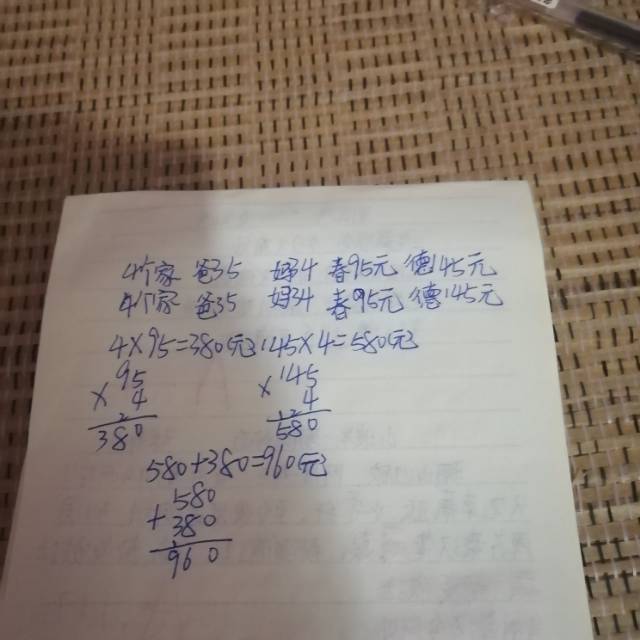 4个家 爸35 妈34 春95元 德145元
4个家 爸35 妈34 春95元 德145元
4×95=380元 145×4=580元
95 145
× 4 × 4
380 580
580+380=960元
580
+380
960